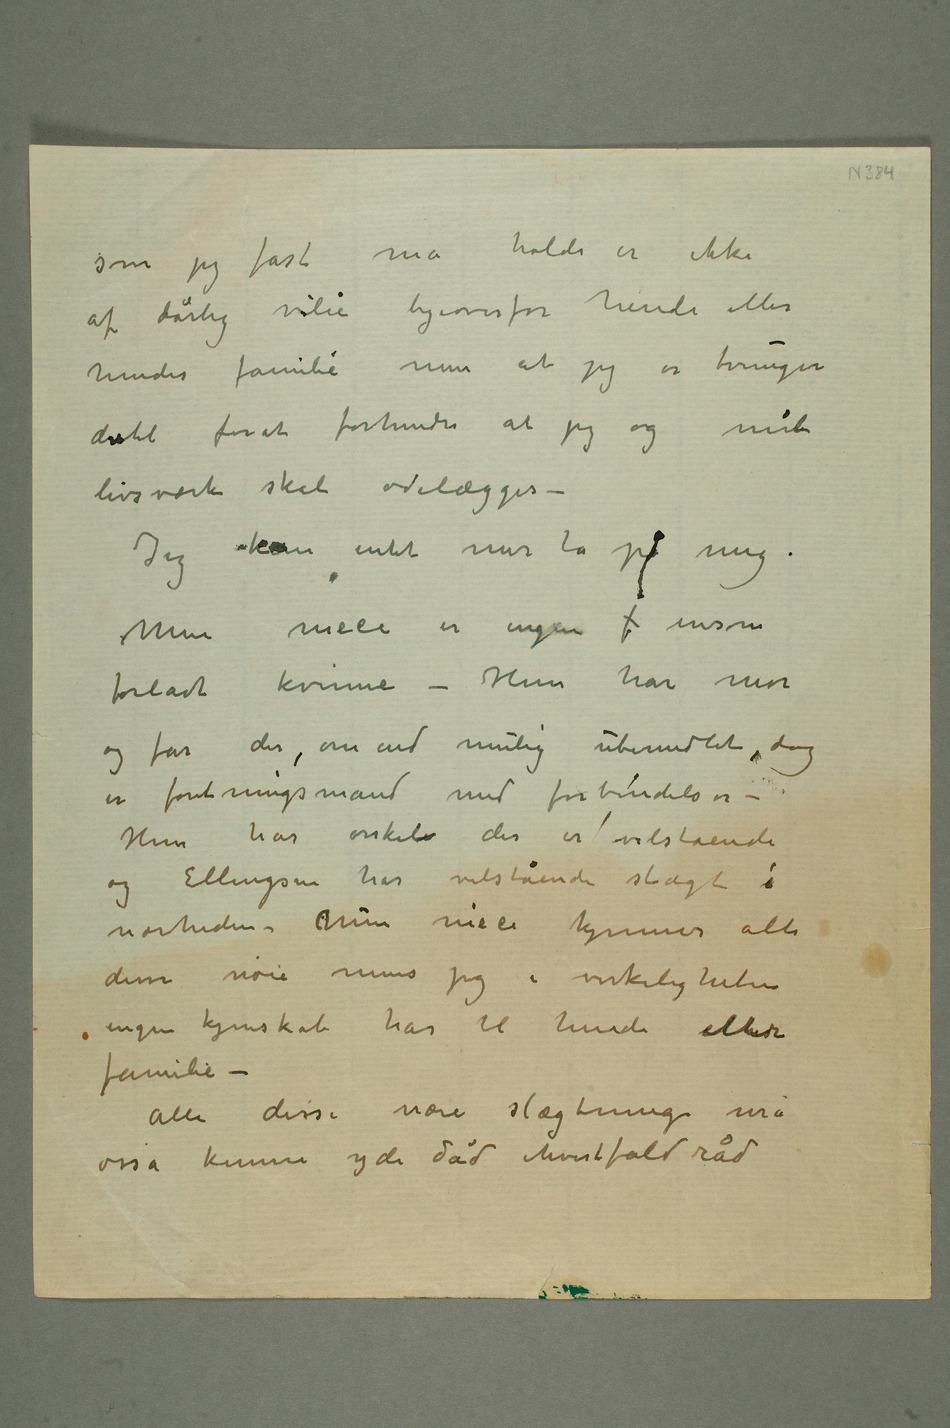 N 384
som jeg fast må holde er ikke
af dårlig vilie ligeoverfor hende eller
hendes familie men at jeg er tvungen
dertil forat forhindre at jeg og mit
livsværk skal odelægges –
Jeg kan intet mer ta på mig.
Min niece er ingen ensom
forladt kvinne – Hun har mor
og far der, om end mulig ubemidlet, dog
er foretningsmand med forbindelser –
Hun har onkel der er velstående
og Ellingsen har velstående slægt i
nærheden. Min niece kjenner alle
disse nøie mens jeg i virkeligheten
ingen kjenskab har til hende eller
familie –
Alle disse nære slægtninge må
osså kunne yde dåd ihvertfald råd